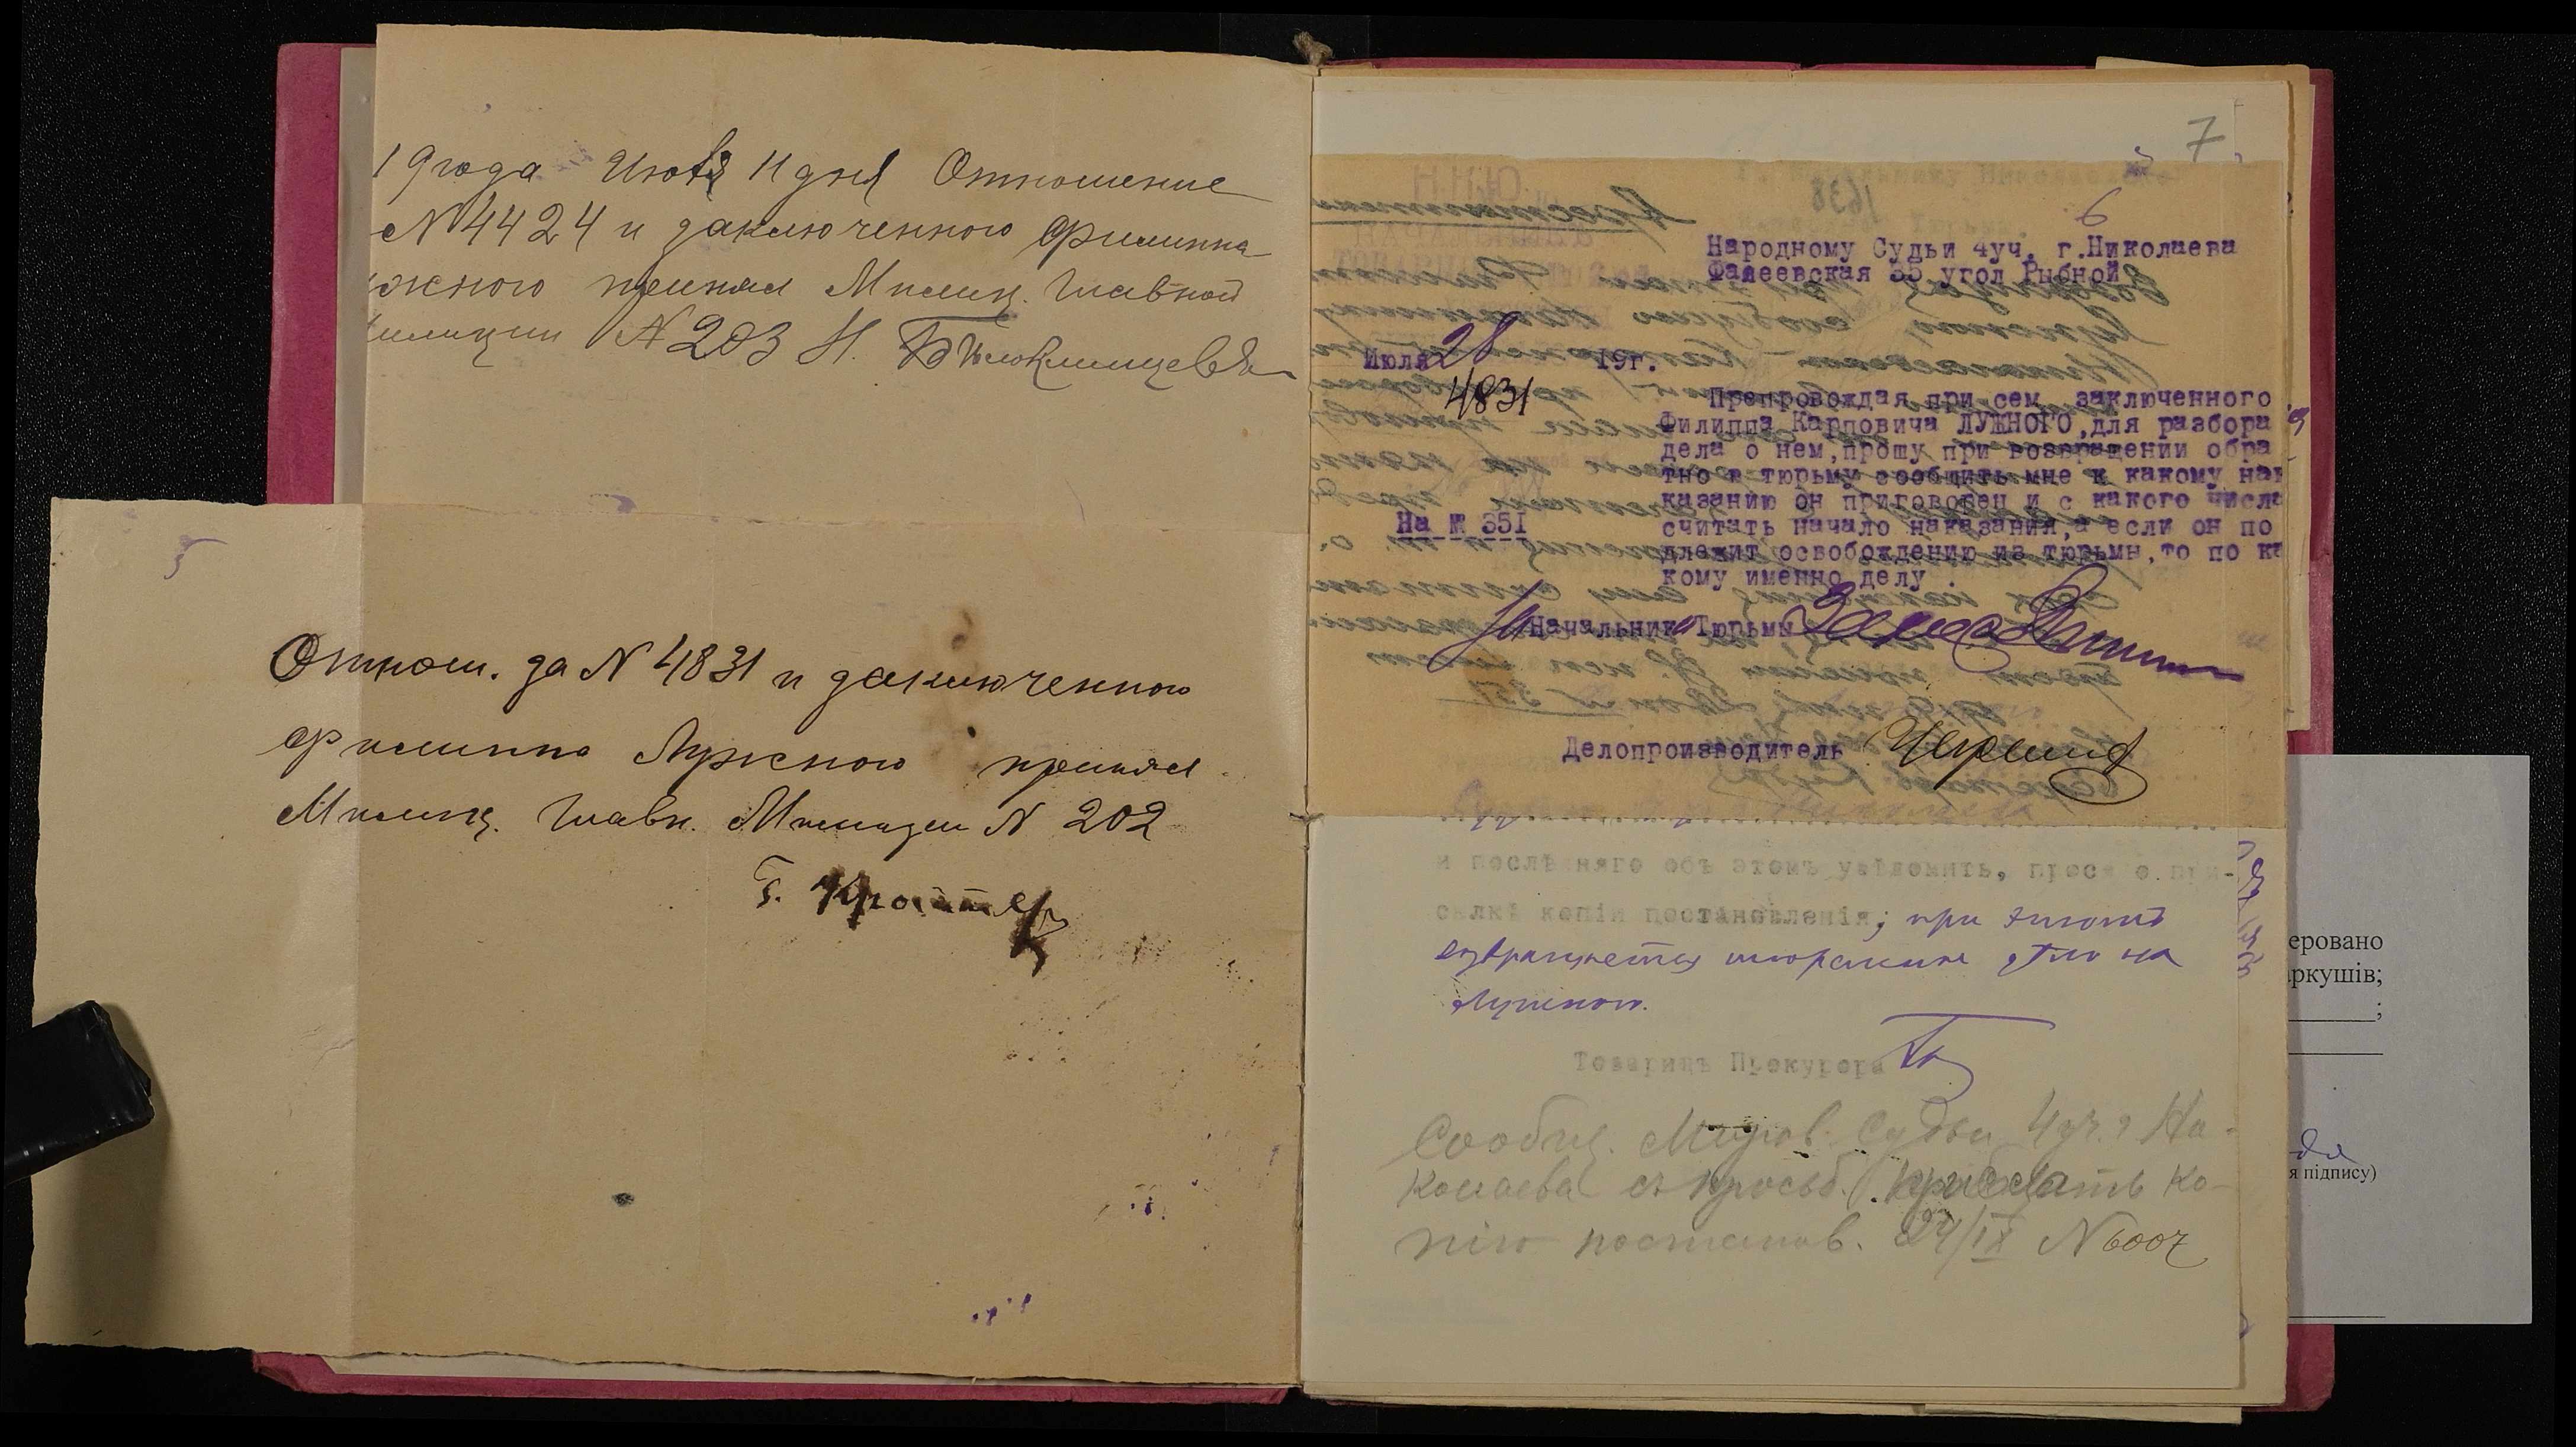 19 года Июля 11 дня Отношение
№ 4424 и заключенного Филиппа
жного принял Милиц. Главной
илиции № 203 Н.
5
Отнош. за № 4831 и заключенного
Филиппа Лужного принял
Милиц. Главн. Милиции № 202
Г.
7
6
Народному Судьи 4уч. г.Николаева
Фалеевская 35 угол Рыбной
Июля 28 19г.
4831
Препровождая при сем заключенного
Филиппа Карповича ЛУЖНОГО,для разбора
дела о нем,прошу при возвращении обра
тно в тюрьму сообщить мне к какому на
казанию он приговорен и с какого числа
На № 351
считать начало наказания,а если он по
длежит освобождению из тюрьмы,то по ка
кому именно делу .
Начальника Тюрьмы
Делопроизводитель
и послѣдняго объ этомъ увѣдомить, прося о при-
сылкѣ копіи постановленія; при этомъ
возвращается дѣло на
Лужного.
Товарищъ Прокурора
Сообщ. Миров. Судьи 4 уч. г Ни-
колаева съ просьб. прислать ко-
пію постанов. 24/IX № 6007
еровано
аркушів;
;
я підпису)